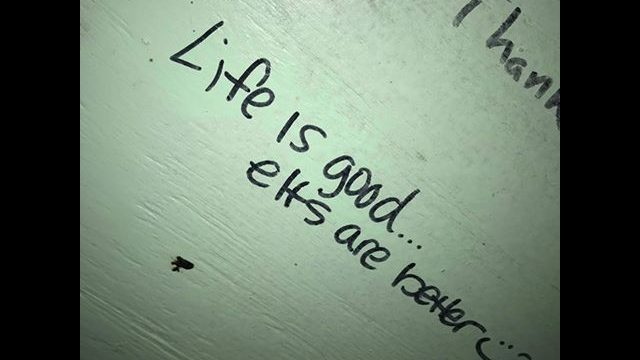 Thank
Life is good...
are better :)